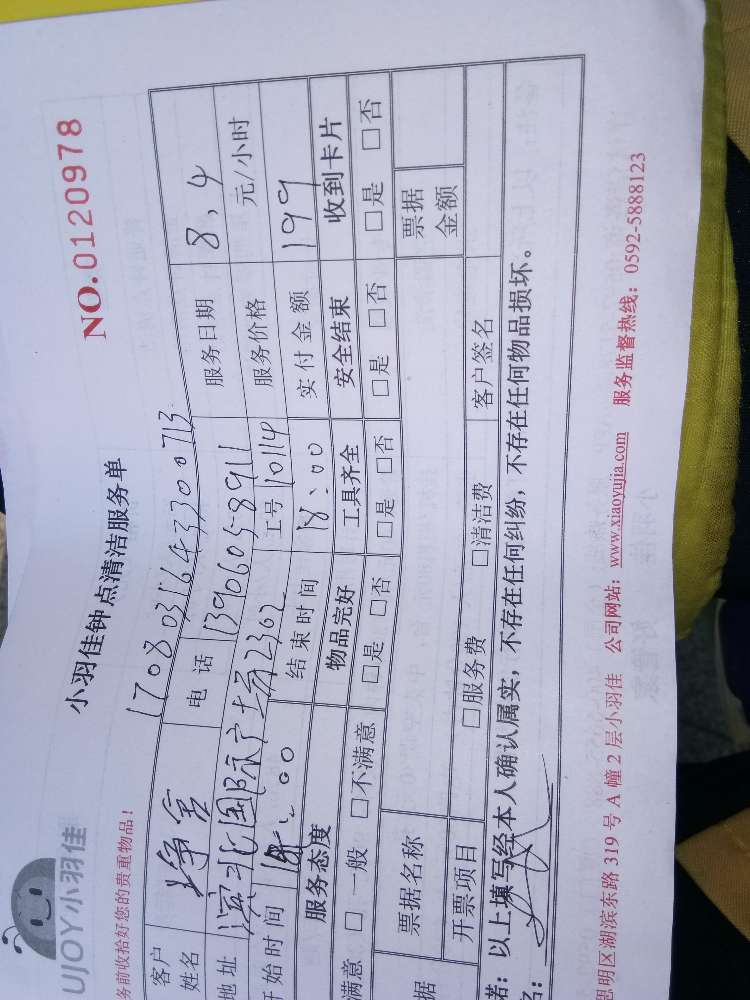 UJOY小羽佳
小羽佳钟点清洁服务单
NO.0120978
务前收拾好您的贵重物品!
1708031643300713
客户姓名
电 话 13906058911 服务日期 8.4
地址 滨北国际广场2302 工号 10114 服务价格 元/小时
开始时间 :00 结束时间 18:00 实付金额 199
服务态度 物品完好 工具齐全 安全结束 收到卡片
满意 □ 一般 □不满意 □是 □否 □是 □否 □是 □否 □是 □否
据 票据名称 票据金额
开票项目 □服务费 □清洁费 客户签名
诺:以上填写经本人确认属实,不存在任何纠纷,不存在任何物品损坏。
名:
思明区湖滨东路 319 号 A 幢 2 层小羽佳 公司网站:www.xiaoyujia.com 服务监督热线:0592-5888123